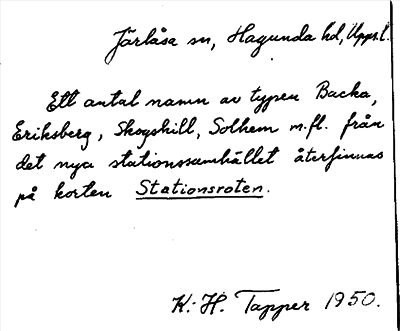 Järlåsa sn, Hagunda hd, Upps.l.
Ett antal namn av typen Backa,
Eriksberg, Skogshill, Solhem m.fl. från
det nya stationssamhället återfinnas
på korten Stationsroten.
K.-H. Tapper 1950.